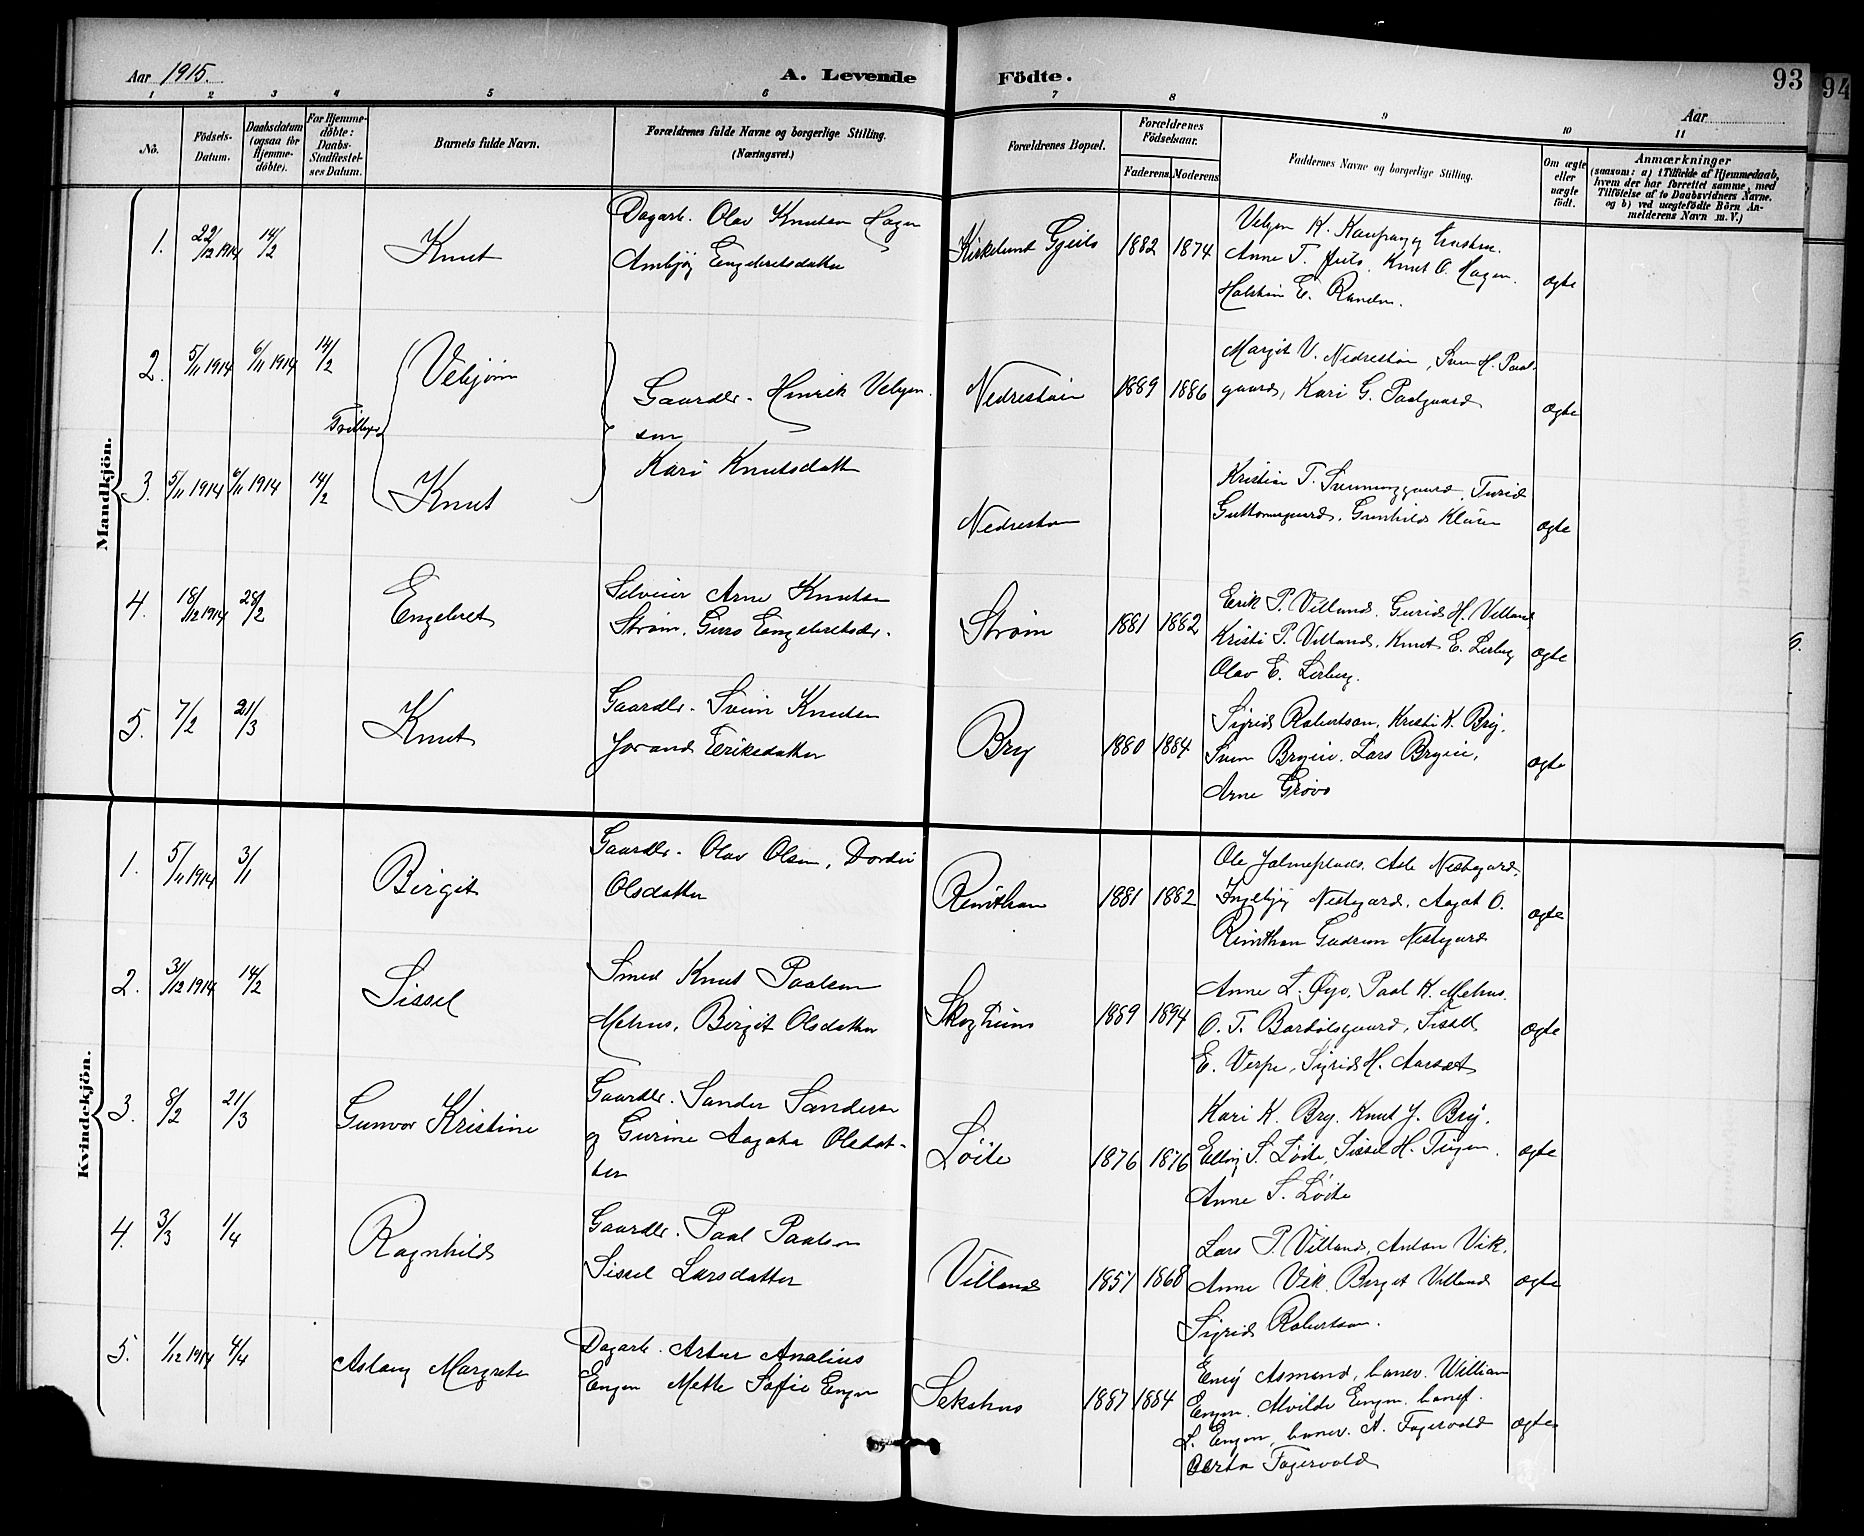 Aar 1915.
A. Levende Födte.
93
94
Aar
1 2 3 4 5 6 7 8 9 10 11
No.
Födsels-Datum.
Daabsdatum (ogsaa for Hjemme-döbte).
For Hjemme-döbte: Daabs-Stadfæstel-ses Datum.
Barnets fulde Navn.
Forældrenes fulde Navne og borgerlige Stilling.
(Næringsvei.)
Forældrenes Bopæl.
Forældrenes Födselsaar.
Faderens. Moderens.
Faddernes Navne og borgerlige Stilling.
Om ægte eller uægte født.
Anmærkninger
(saasom: a) i Tilfælde af Hjemmedaab,
hvem der har forrettet samme, med
Tilföielse af to Daabsvidners Navne.
og b) ved uægtefödte Börn An-
melderens Navn m. V.)
Mandkjön.
1. 22/12 1914 14/2 Knut
Dagarb. Olav Knutsen Hagen
Ambjøg Engebretsdatter
Kirkelund Gjeilo 1882 1874
Anne T. Knut O. Hagen.
Holstein E. Randen.
ægte
2. 5/11 1914 6/11 1914 14/2 Vebjørn
Tvillinger
Gaardbr. Henrik Vebjørn
sen
Kari Knutsdatter
Nedrestøen 1889 1886
Margit V. Nedrestøen, Svein H. Paal-
gaard, Kari G. Paalgaard
ægte
3. 5/11 1914 6/11 1914 14/2 Knut
Nedrestøen
Kristian T. Sveinunggaard, Turid
Guttormsgaard, Gunhild
ægte
4. 18/12 1914 28/2 Engebret
Selveier Arne Knutsen
Strøm, Guro Engebretsdr.
Strøm 1881 1882
Erik P. Villand, Gurid H. Villand
Kristi P. Villand, Knut E. Lerberg
Olav E. Lerberg.
ægte
5. 7/2 21/3 Knut
Gaardbr. Svein Knutsen
Jorand Eriksdatter
Bry 1880 1884
Sigrid Robertson, Kristi K. Bry,
Svein Bryni, Lars Bryni,
Arne Grøvo
ægte
Kvindekjön.
1. 5/11 1914 3/1 Birgit
Gaardbr. Olav Olsen, Dordei
Olsdatter
Reinthon 1881 1882
Ole Jolmeplads, Asle Nestegard,
Ingebjøg Nestegard, Aagot O.
Reinthon Gudrun Nestegard
ægte
2. 31/12 1914 14/2 Sissel
Smed Knut Paalsen
Mehus, Birgit Olsdatter
Skogheim 1889 1894
Anne L. Øyo, Paal K. Mehus.
O. T. Bardølsgaard, Sissel
E. Verpe, Sigrid H. Aarset
ægte
3. 8/2 21/3 Gunvor Kristine
Gaardbr. Sander Sandersen
og Gurine Aagata Olsdat-
ter
Löite 1876 1876
Kari K. Bry, Knut J. Bry,
Elling S. Löite, Sissel H.
Anne S. Löite
ægte
4. 3/3 1/4 Ragnhild
Gaardbr. Paal Paalsen
Sissel Larsdatter
Villand 1857 1868
Lars P. Villand, Anton Vik,
Anne Vik, Berget Villand
Sigrid Robertson.
ægte
5. 1/12 1914 4/4 Aslaug Margrete
Dagarb. Artur Analius
Engen Mette Sofie Engen
Sekshus 1887 1884
Asmund, banev. William
Engen. Alvilde Engen. banef.
L. Engen, banev. A. Fagervold
Berta Fagervold
ægte